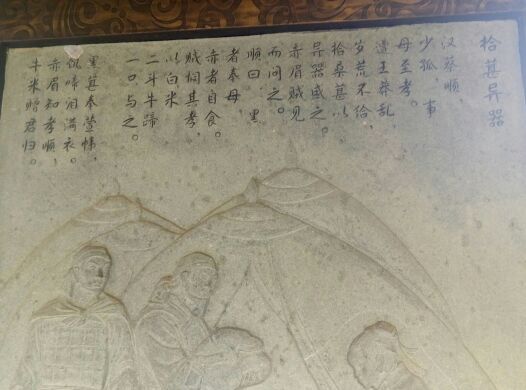 拾葚异器
汉蔡顺，
少孤，事
母至孝。
遭王莽乱，
岁荒不给，
拾桑葚以
异器盛之。
赤眉贼见
而问之。
顺曰：黑
者奉母，
赤者自食。
贼悯其孝，
以白米
二斗牛蹄
一只与之。
黑葚奉萱帏，
饥啼泪满衣。
赤眉知孝顺，
牛米赠君归。